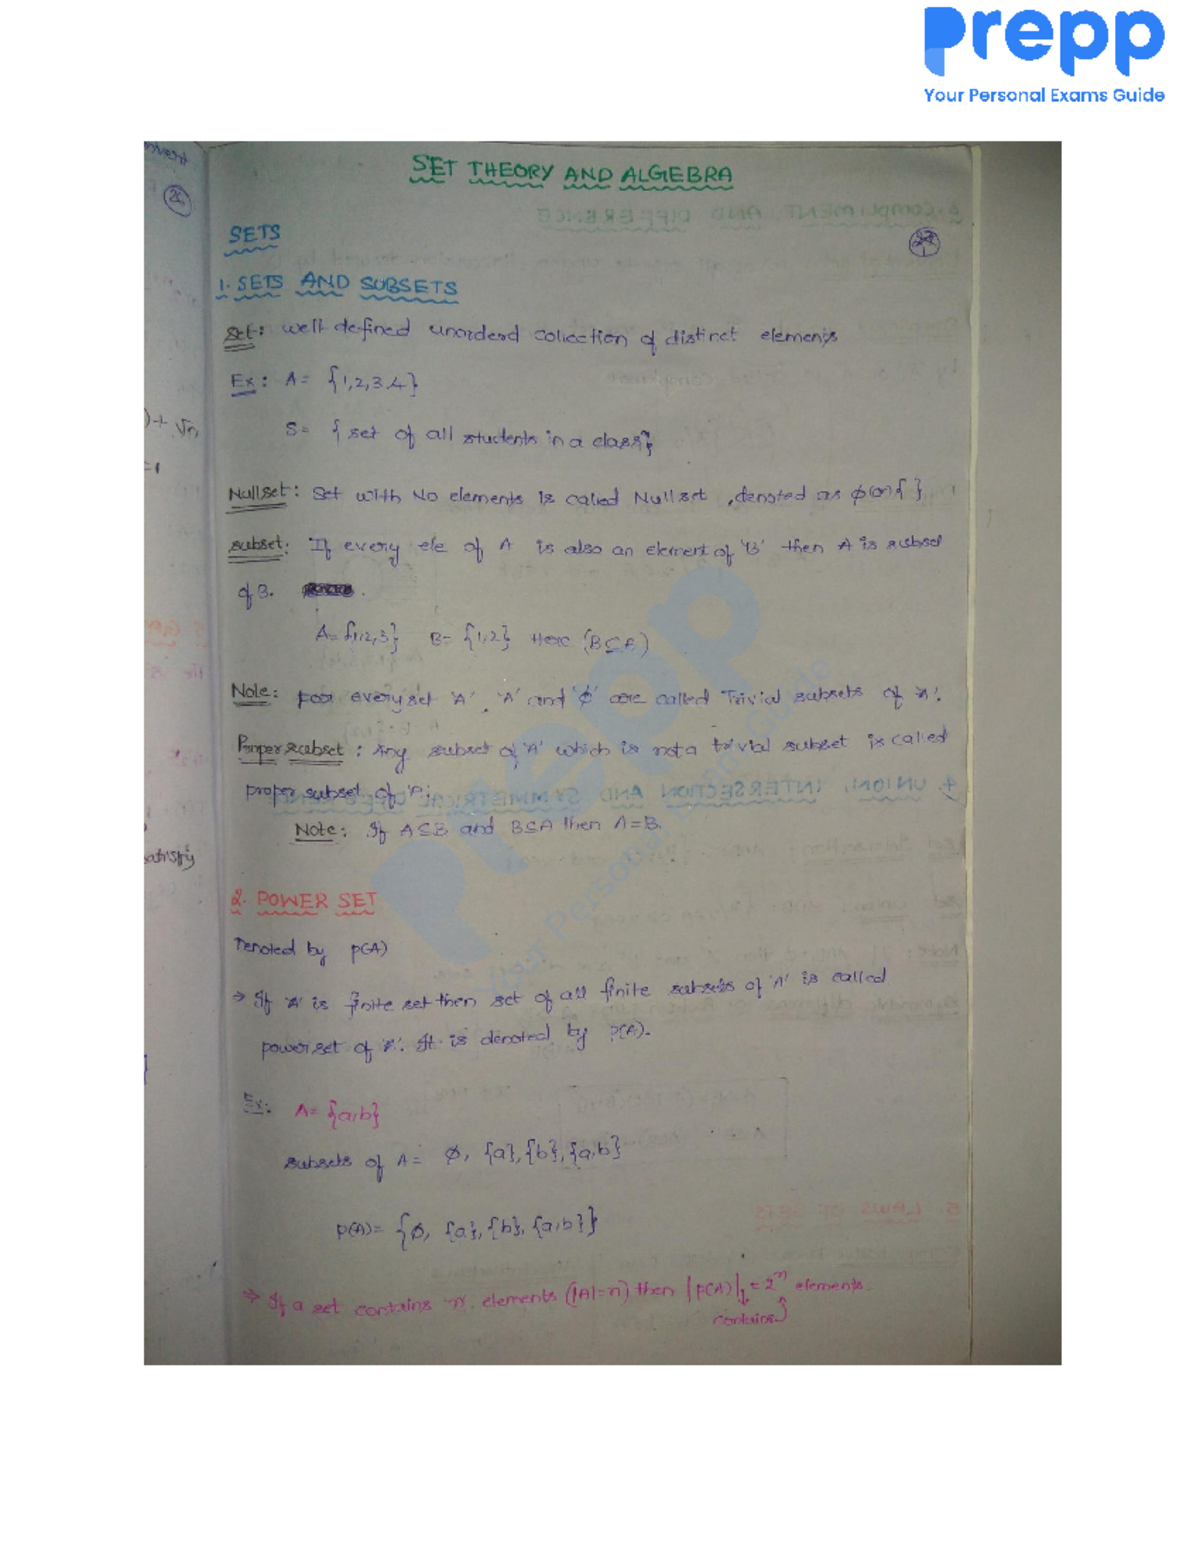 prepp
Your Personal Exams Guide
SET THEORY AND ALGEBRA
SETS
1. SETS AND SUBSETS
Set: well defined unorderd collection of distinct elements
Ex: A = {1,2,3,4}
S = { set of all students in a class}
Nullset: Set with No elements is called Nullset, denoted as ϕ(or){ }
subset: If every ele of A is also an element of 'B' then A is subset
of B.
A={1,2,3} B= {1,2} Here (B⊆A)
Note: For every set 'A', 'A' and 'ϕ' are called Trivial subsets of 'A'.
Proper subset: Any subset of 'A' which is not a trivial subset is called
proper subset of 'A'.
Note: If A⊆B and B⊆A then A=B.
2. POWER SET
Denoted by P(A)
→ If 'A' is finite set then set of all finite subsets of 'A' is called
power set of 'A'. It is denoted by P(A).
Ex: A= {a,b}
subsets of A= ϕ, {a},{b},{a,b}
P(A)= {ϕ, {a},{b},{a,b}}
→ If a set contains 'n' elements (|A|=n) then |P(A)| = 2ⁿ elements.
contains
satisfy